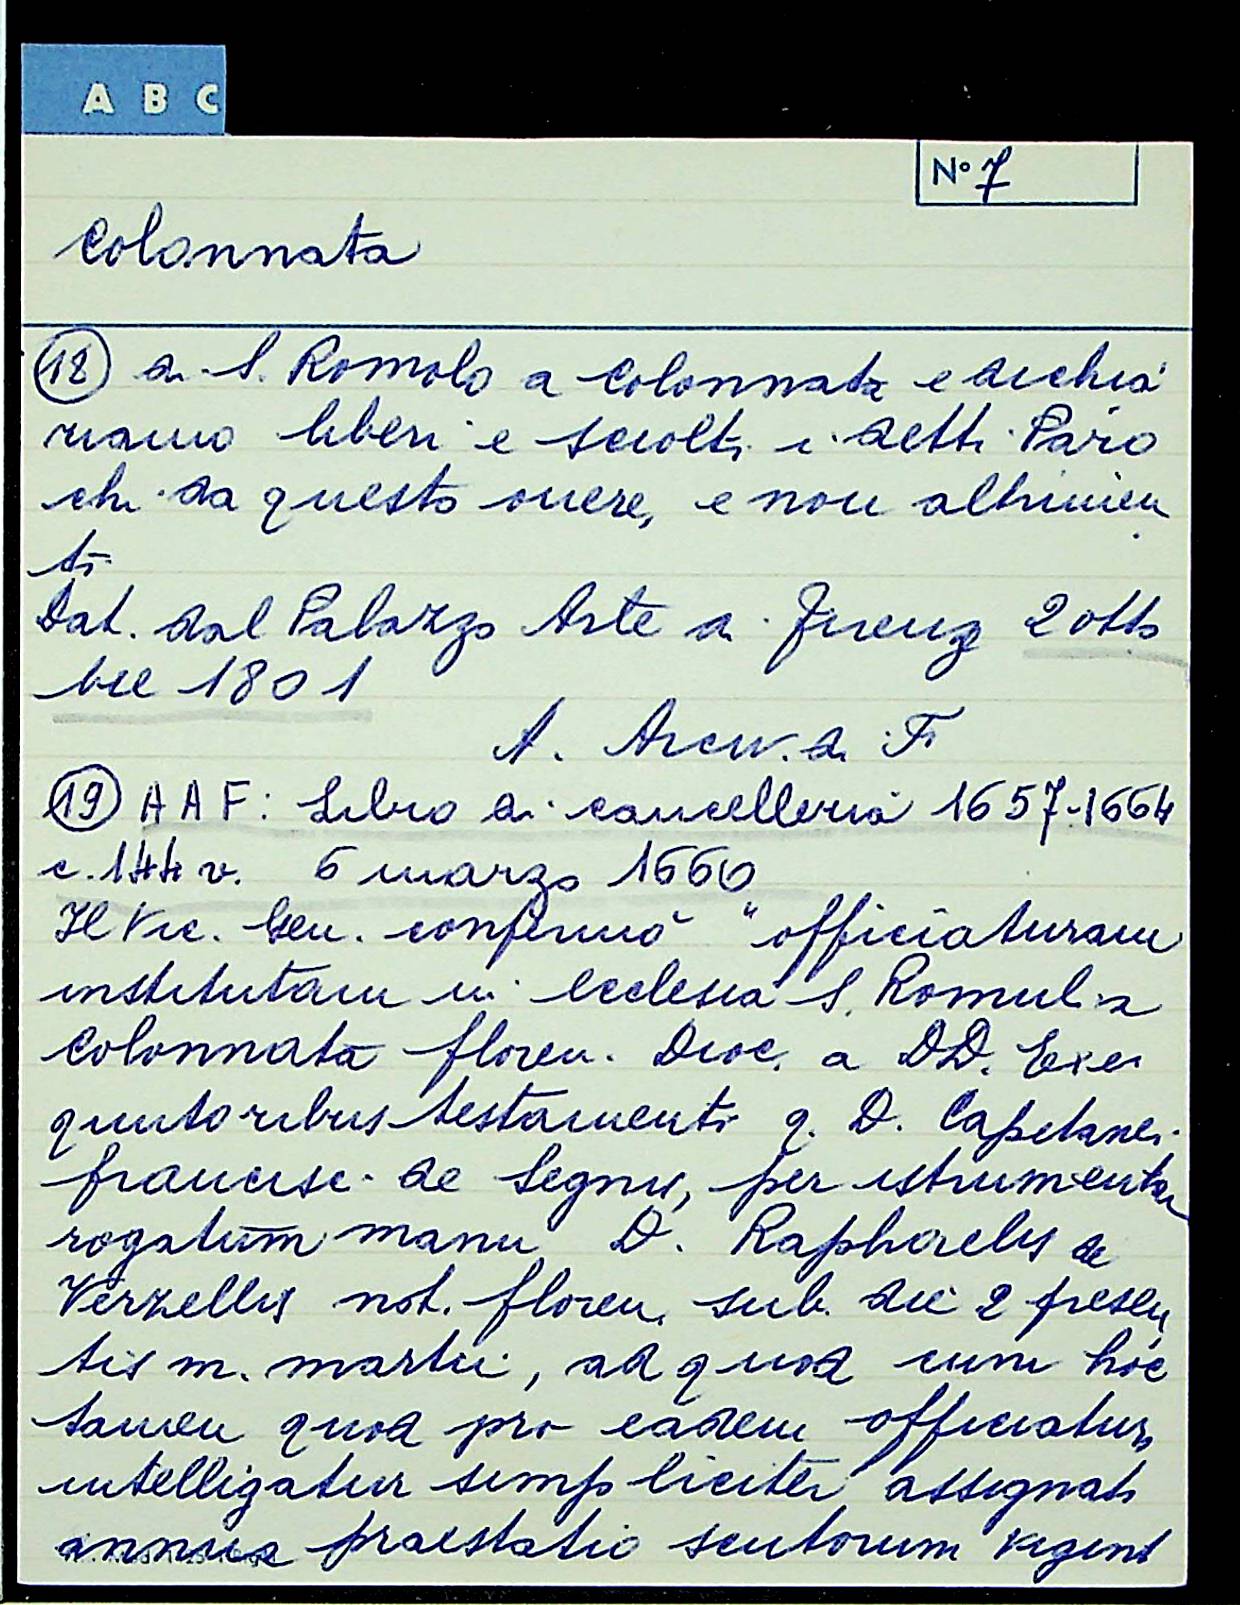 A B C
N° 7
Colonnata
18 di S. Romolo a Colonnata e dichia
riamo liberi e sciolti i detti Paro
chi da questo onere, e non altrimen
ti.
Dat. dal Palazzo Arte di Firenze 2 otto
bre 1801
A. Arciv. di Fi
19 AAF: Libro di cancelleria 1657-1664
c. 144 v. 6 marzo 1660
Il Vic. Gen. confermò "officiaturam
institutam in ecclesia S. Romuli a
Colonnata floren. Dioc. a DD. Exe
quutoribus testamenti q. D. Capitanei
francisc. de Segnis, per istrumentu
rogatum manu D. Raphaelis de
Verzellis not. floren. sub. die 2 presen
tis m. martii, ad quod cum hoc
tamen quod pro eadem officiatur
intelligatur simpliciter assignati
annua praestatio scutorum vigint